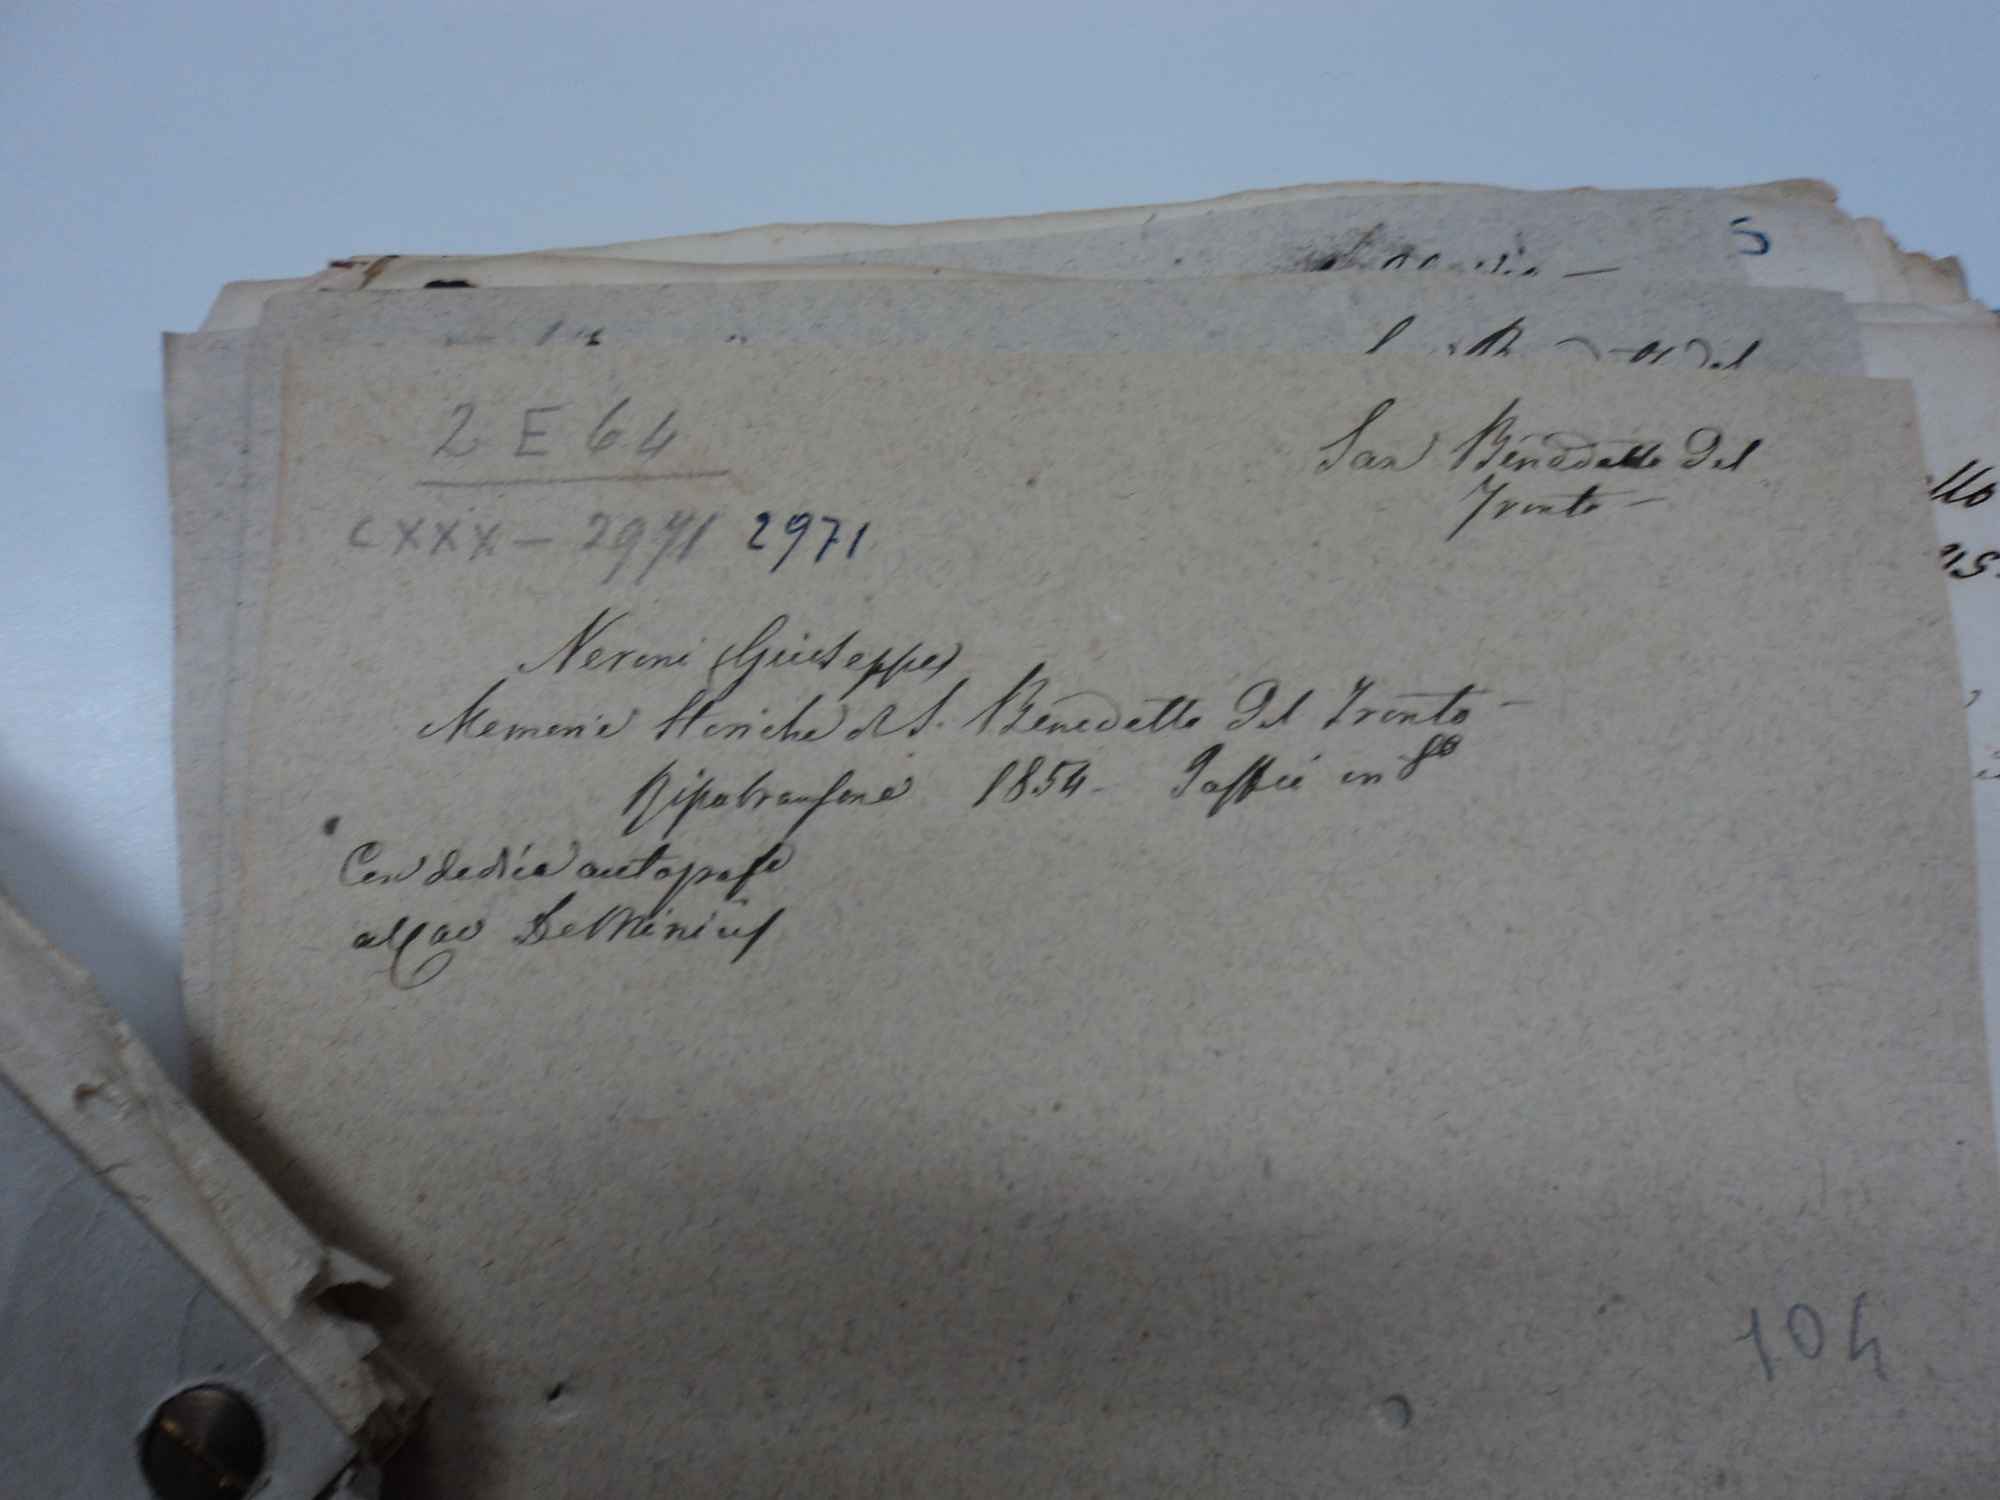 5
2 E 64
San Benedetto Del
Tronto —
CXXX — 2971 2971
Neroni (Giuseppe)
Memorie Storiche di S. Benedetto Del Tronto —
Ripatransone 1854 - Jaffei in 8°
Con dedica autografa
al Cav De Minicis
104